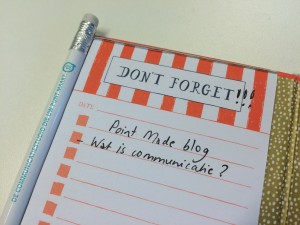 DON'T FORGET!!!
DATE
Point Made blog
- Wat is communicatie?
DE COMMUNICATIEDESK